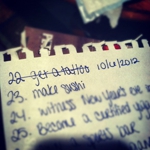 22. get a tattoo 10/6/2012
23. make sushi
24. witness New Years eve in
25. Become a certified
bar